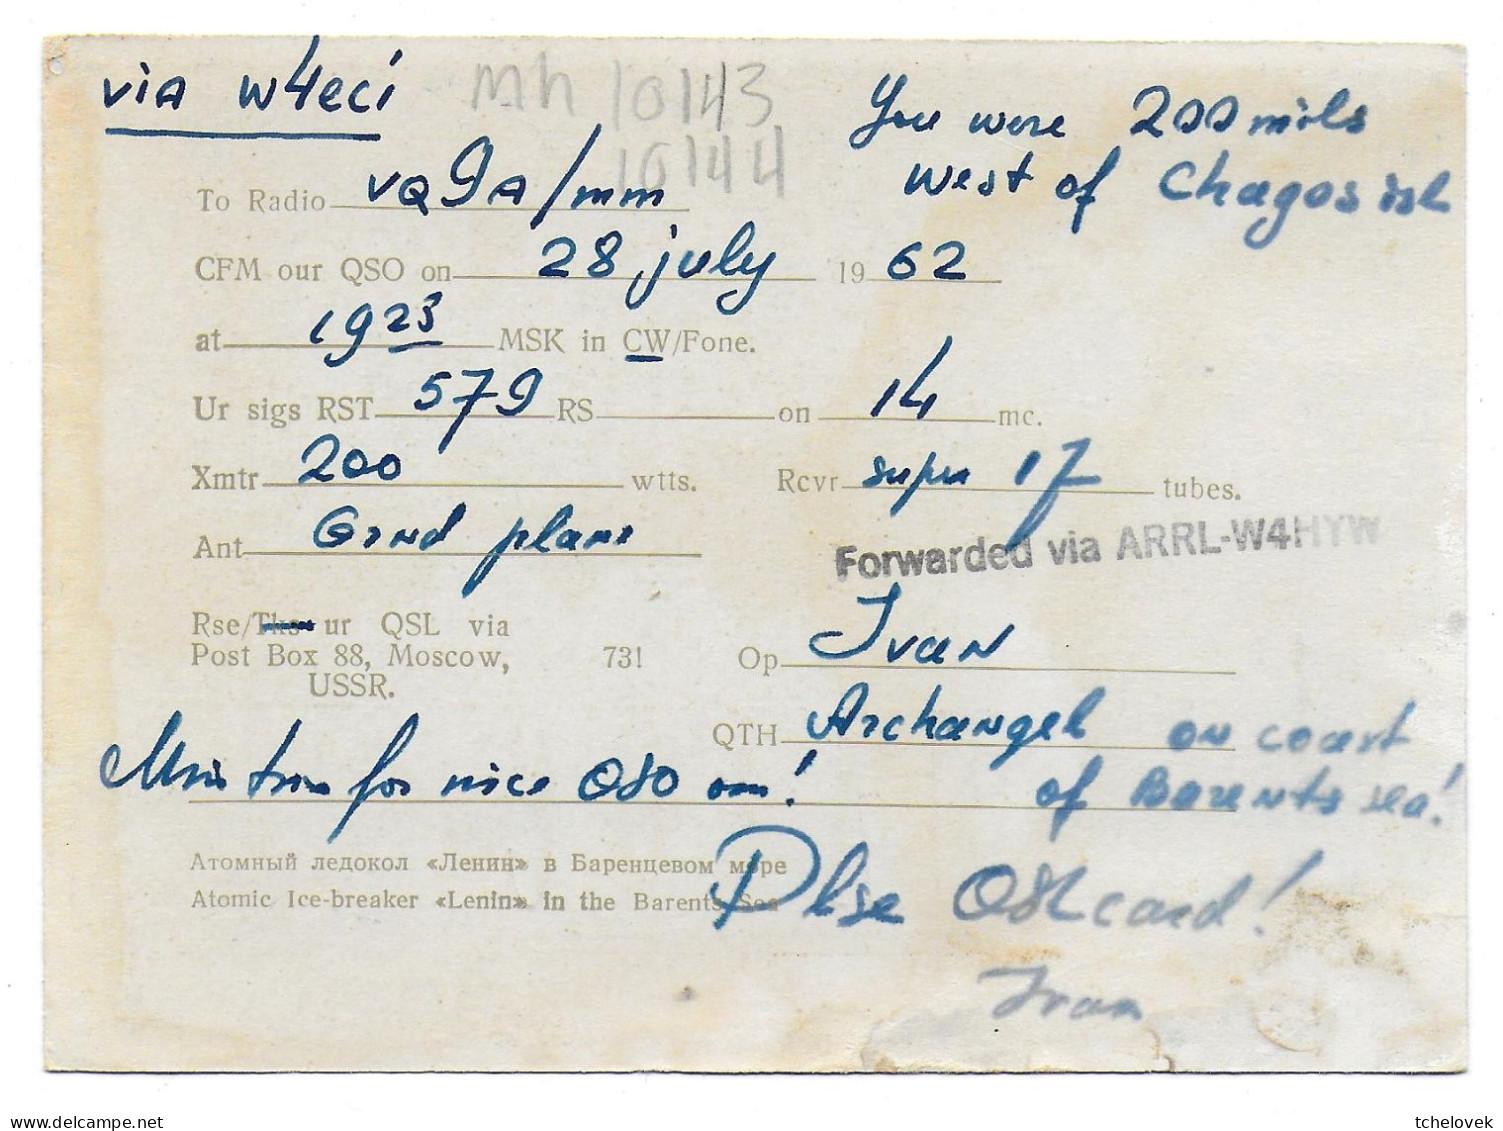 via w4eci mh 10143
10144
You were 200 mils
west of Chagos isl
To Radio VQ9A/mm
CFM our QSO on 28 july 19 62
at 1923 MSK in CW/Fone.
Ur sigs RST 579 RS on 14 mc.
Xmtr 200 wtts. Rcvr super 17 tubes.
Ant Grnd plane
Forwarded via ARRL-W4HYW
Rse/Tks ur QSL via
Post Box 88, Moscow, 73! Op Ivan
USSR.
QTH Archangel on coast
of Barents sea!
for nice QSO om!
Атомный ледокол «Ленин» в Баренцевом море
Atomic Ice-breaker «Lenin» in the Barents Sea
Plse QSL card!
Ivan
tchelovek